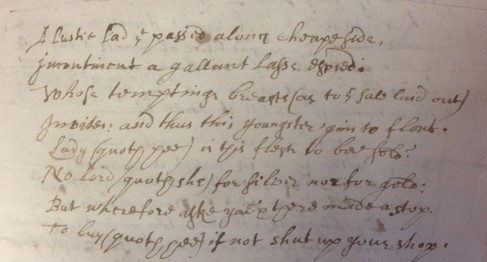 A lustie Lad yt passed along cheapeside,
incontinent a gallant Lasse espied:
Whose tempting breasts (as to ye sale laid out)
Invites: and thus this youngster gins to flout.
Lady (quoth hee) is this flesh to bee sold?
No Lord (quoth she) for silver nor for gold:
But wherefore aske you? & there made a stop.
To buy (quoth hee) if not shut up your shop.